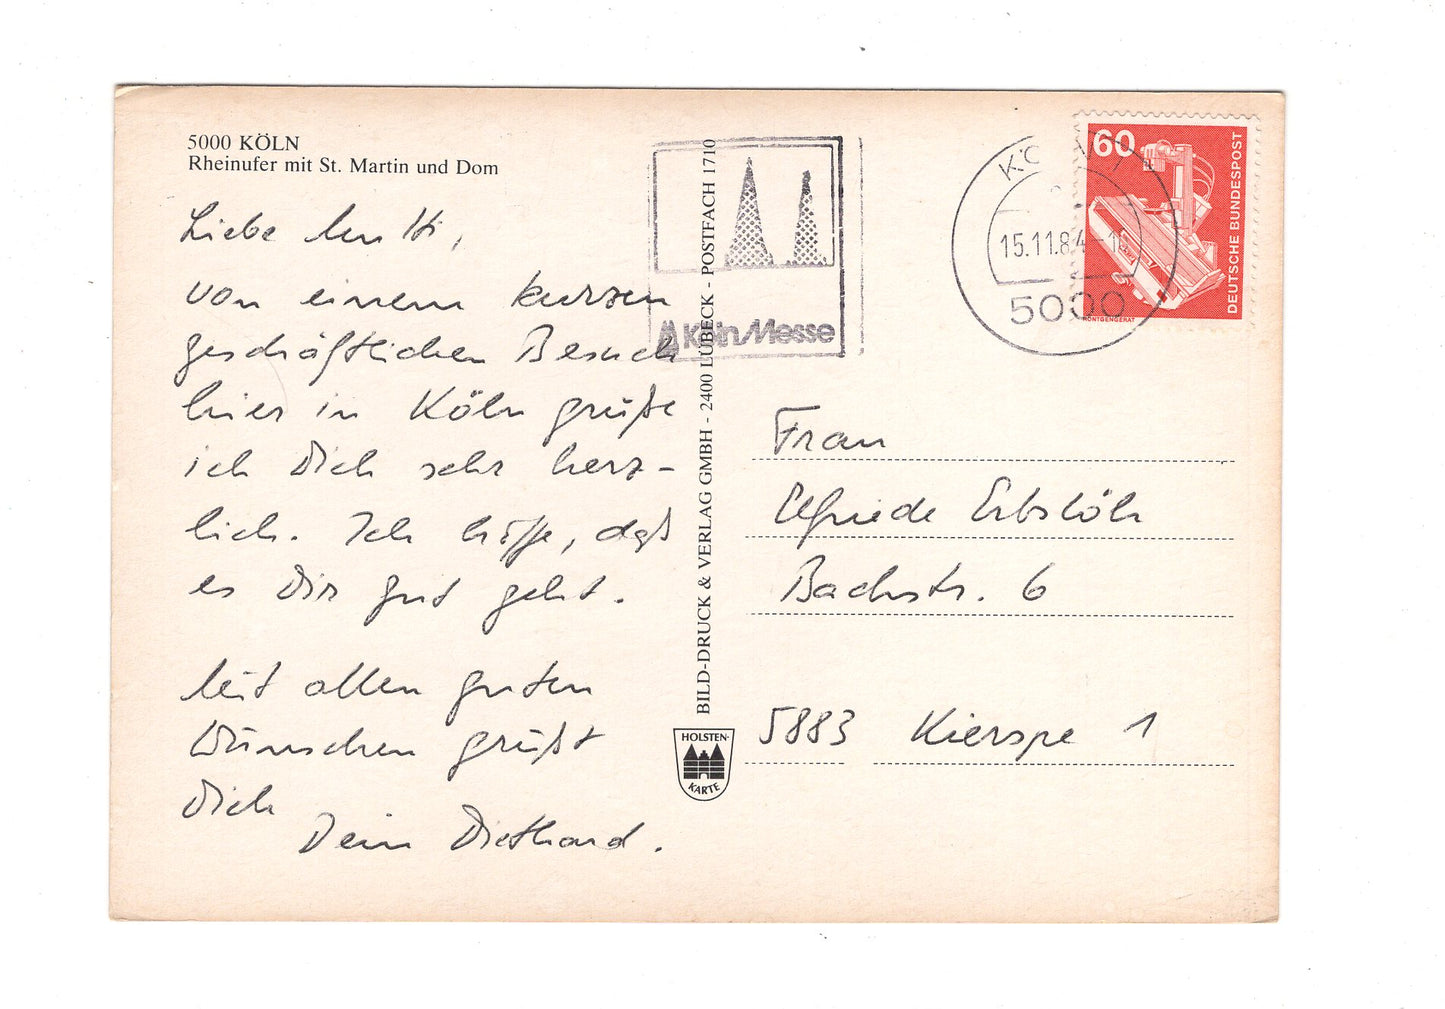 5000 KÖLN
Rheinufer mit St. Martin und Dom
Liebe Mutti,
von einem kurzen
geschäftlichen Besuch
hier in Köln grüße
ich Dich sehr herz-
lich. Ich hoffe, daß
es Dir gut geht.
Mit allen guten
Wünschen grüßt
Dich
Dein Diethard.
BILD-DRUCK & VERLAG GMBH - 2400 LÜBECK - POSTFACH 1710
HOLSTEN-
KARTE
KölnMesse
KÖLN
15.11.84-1
5000
60
DEUTSCHE BUNDESPOST
RÖNTGENGERÄT
Frau
Elfriede Erbslöh
Bachstr. 6
5883 Kierspe 1